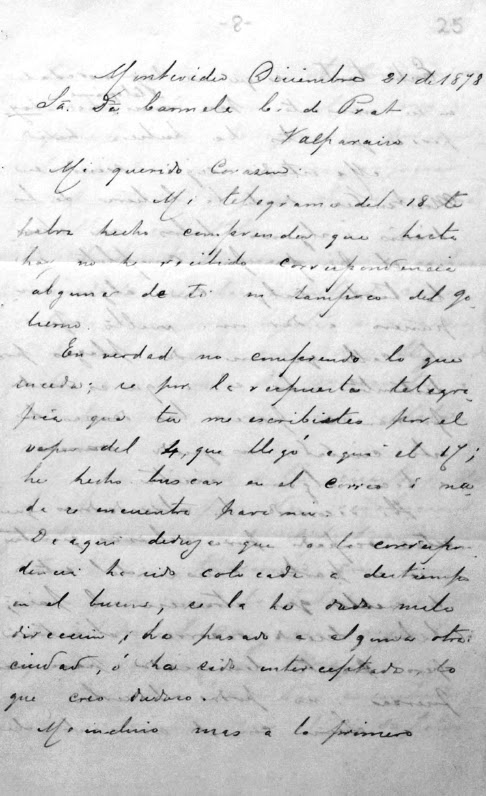 -8-
25
Montevideo Diciembre 21 de 1878
Sa. Da. Carmela C. de Prat
Valparaiso
Mi querido Corazon
Mi telegrama del 18 te
habra hecho comprender que hasta
hoy no he recibido correspondencia
alguna de ti ni tampoco del go-
bierno.
En verdad no comprendo lo que
suceda; se por la respuesta telegra-
fica que tu me escribistes por el
vapor del 4, que llegó aqui el 17;
he hecho buscar en el correo i na-
da se encuentra para mi.
De aqui deduzco que o la correspon
dencia ha sido colocada a destiempo
en el buzon, se la ha dado mala
direccion i ha pasado a alguna otra
ciudad, ó ha sido interceptada lo
que creo dudoso.
Me inclino mas a lo primero